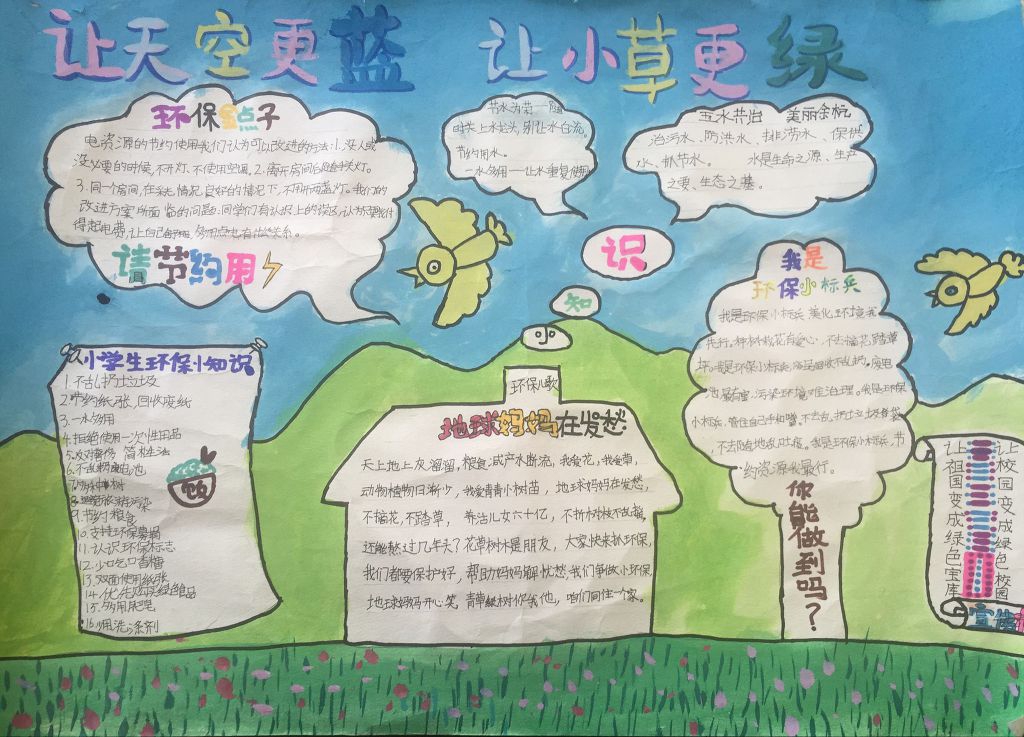 让天空更蓝 让小草更绿
环保金点子
电资源的节约使用我们认为可以改进的方法:1.没人或
没必要的时候,不开灯,不使用空调,2.离开房间后随手关灯。
3.同一个房间,在采光情况良好的情况下,不用开两盏灯。我们的
改进方案所面临的问题:同学们有认识上的误区,认为
得起电费,让自己舒服,多用点也有什么关系。
请节约用
节水为荣——随
时关上水龙头,别让水白流。
节约用水。
一水多用——让水重复使用
五水共治 美丽余杭
治污水、防洪水、排涝水、保供
水、抓节水。 水是生命之源、生产
之要、生态之基。
识
知
小
小学生环保小知识
1.不乱扔垃圾
2.节约纸张,回收废纸
3.一水多用
4.拒绝使用一次性用品
5.反对奢侈 简朴生活
6.不乱扔电池
9.节约粮食
10.支持环保募捐
11.认识环保标志
12.少吃口香糖
13.双面使用纸张
14.优先购买绿色产品
15.多用
16.用洗涤剂
饭
环保儿歌
地球妈妈在发愁
天上地上灰溜溜,粮食减产水断流,我爱花,我爱草,
动物植物日渐少,我爱青青小树苗,地球妈妈在发愁,
不摘花,不踏草, 养活儿女六十亿, 不折树枝不乱
还能熬过几年头?花草树木是朋友, 大家快来抓环保,
我们都要保护好,帮助妈妈解忧愁,我们争做小环保,
地球妈妈开心笑,青草绿树你我他,咱们同住一个家。
我是
环保小标兵
我是环保小标兵,美化环境我
先行。种树栽花有爱心,不去摘花踏草
坪。我是环保小标兵,
池最有毒,污染环境难治理。我是环保
小标兵,管住自己手和嘴。不去乱扔垃圾袋,
不去随地乱吐痰。我是环保小标兵,节
约资源我最行。
你能做到吗?
让祖国变成绿色宝库
让校园变成绿色校园